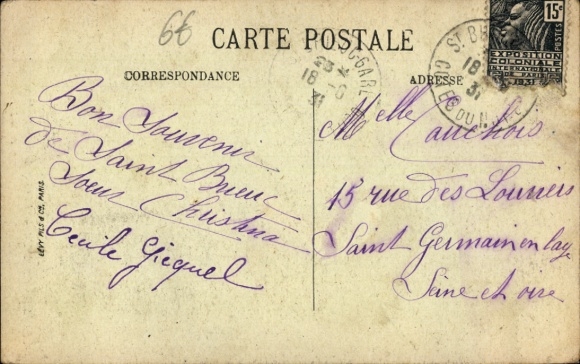 66
CARTE POSTALE
CORRESPONDANCE
ADRESSE
Bon Souvenir
de Saint Brieuc
Soeur Christina
Cécile Gicquel
Melle Cauchois.
15 rue des Louviers
Saint Germain en laye
Seine et oise
LÉVY FILS & Cie, PARIS
15c
POSTES
EXPOSITION
COLONIALE
INTERNATIONALE
DE PARIS
1931
ST BR
18
31
COTES DU NORD
GARE
23
18
31